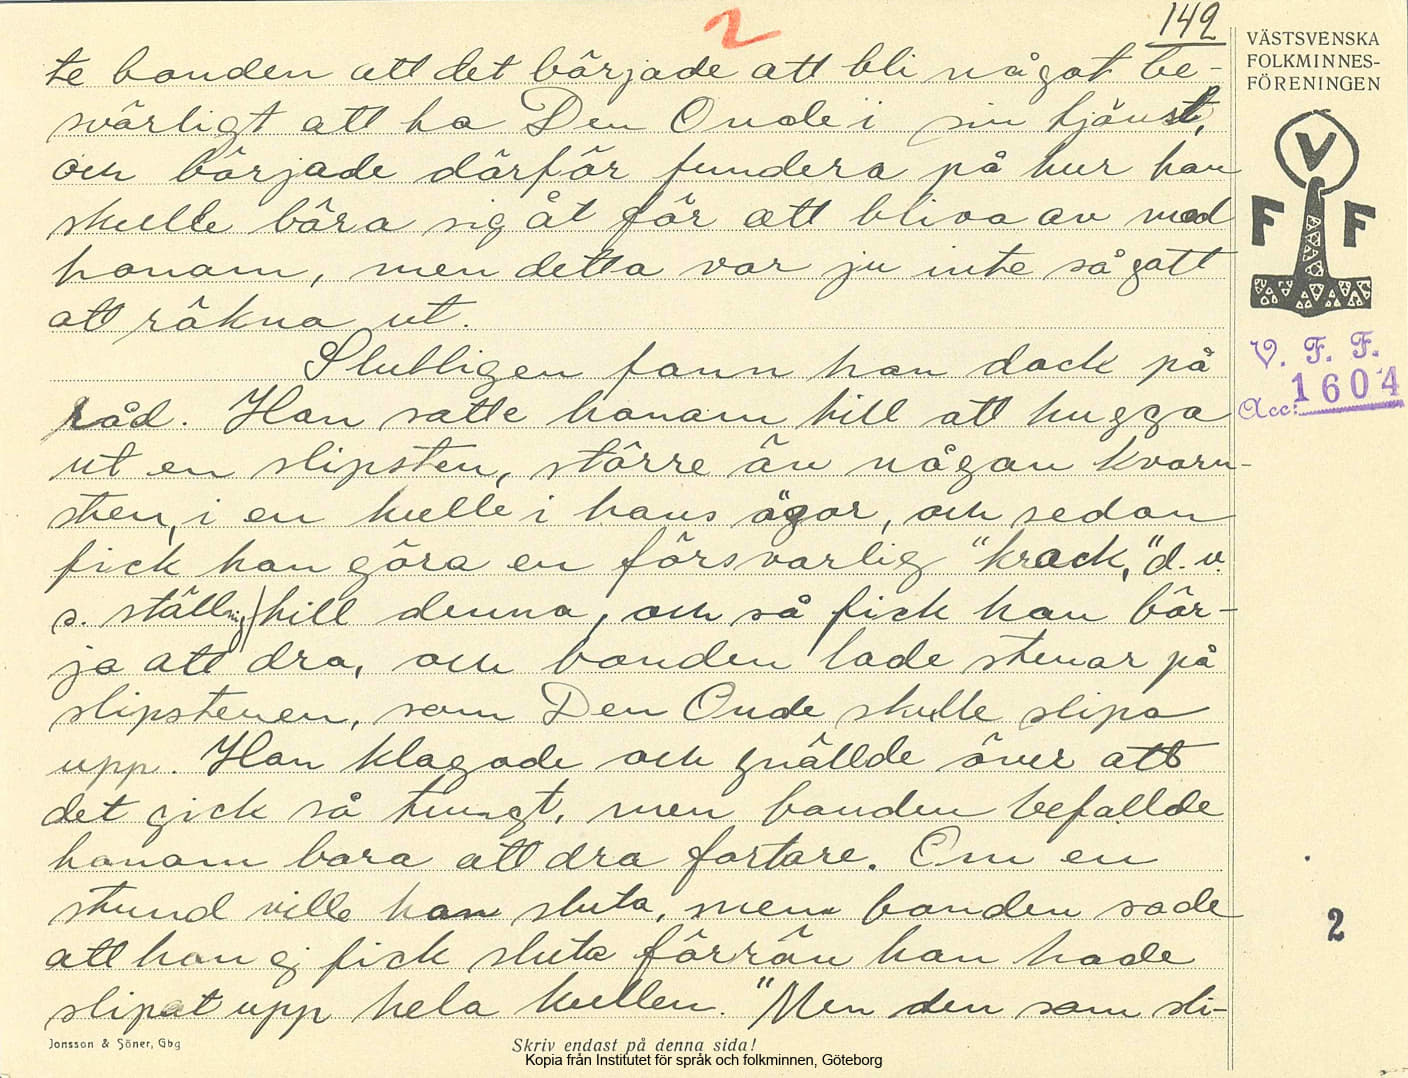 2
149
te bonden att det började att bli något be-
svärligt att ha Den Onde i sin tjänst,
och började därför fundera på hur han
skulle bära sig åt för att bliva av med
honom, men detta var ju inte så gott
att räkna ut.
Slutligen fann han dock på
råd. Han satte honom till att hugga
ut en slipsten, större än någon kvarn-
sten, i en kulle i hans ägor, och sedan
fick han göra en försvarlig "krack," d. v.
s. ställning till denna, och så fick han bör-
ja att dra, och bonden lade stenar på
slipstenen, som Den Onde skulle slipa
upp. Han klagade och gnällde över att
det gick så tungt, men bonden befallde
honom bara att dra fortare. Om en
stund ville han sluta, men bonden sade
att han ej fick sluta förrän han hade
slipat upp hela kullen. "Men den som sli-
VÄSTSVENSKA
FOLKMINNES-
FÖRENINGEN
V
F F
V. F. F.
Acc: 1604
2
Jonsson & Söner, Gbg
Skriv endast på denna sida!
Kopia från Institutet för språk och folkminnen, Göteborg